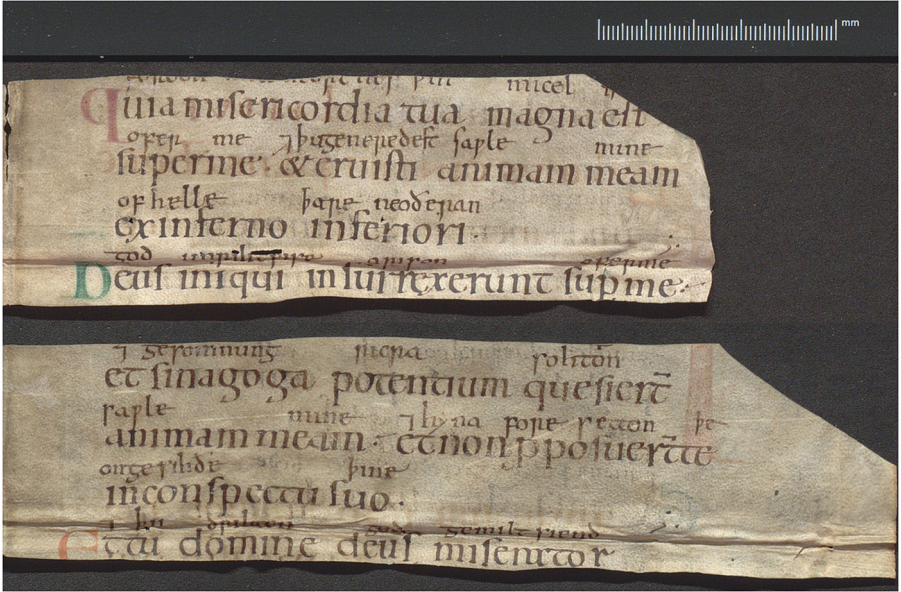 mm
micel
Quia misericordia tua magna est
ofer me ⁊ þu generedest saple mine
super me· & eruisti animam meam
of helle þare neoðeran
ex inferno inferiori·
god ofer me
Deus iniqui insurrexerunt sup me·
⁊ gesomnung solitōn
et sinagoga potentium quesiert̄
saple mine ⁊ hy na fore setton þe
animam meam· et non pposuert̄ te
on gesihðe þine
in conspectu suo·
⁊ þu god gemiltsiend
Et tu domine deus miserator